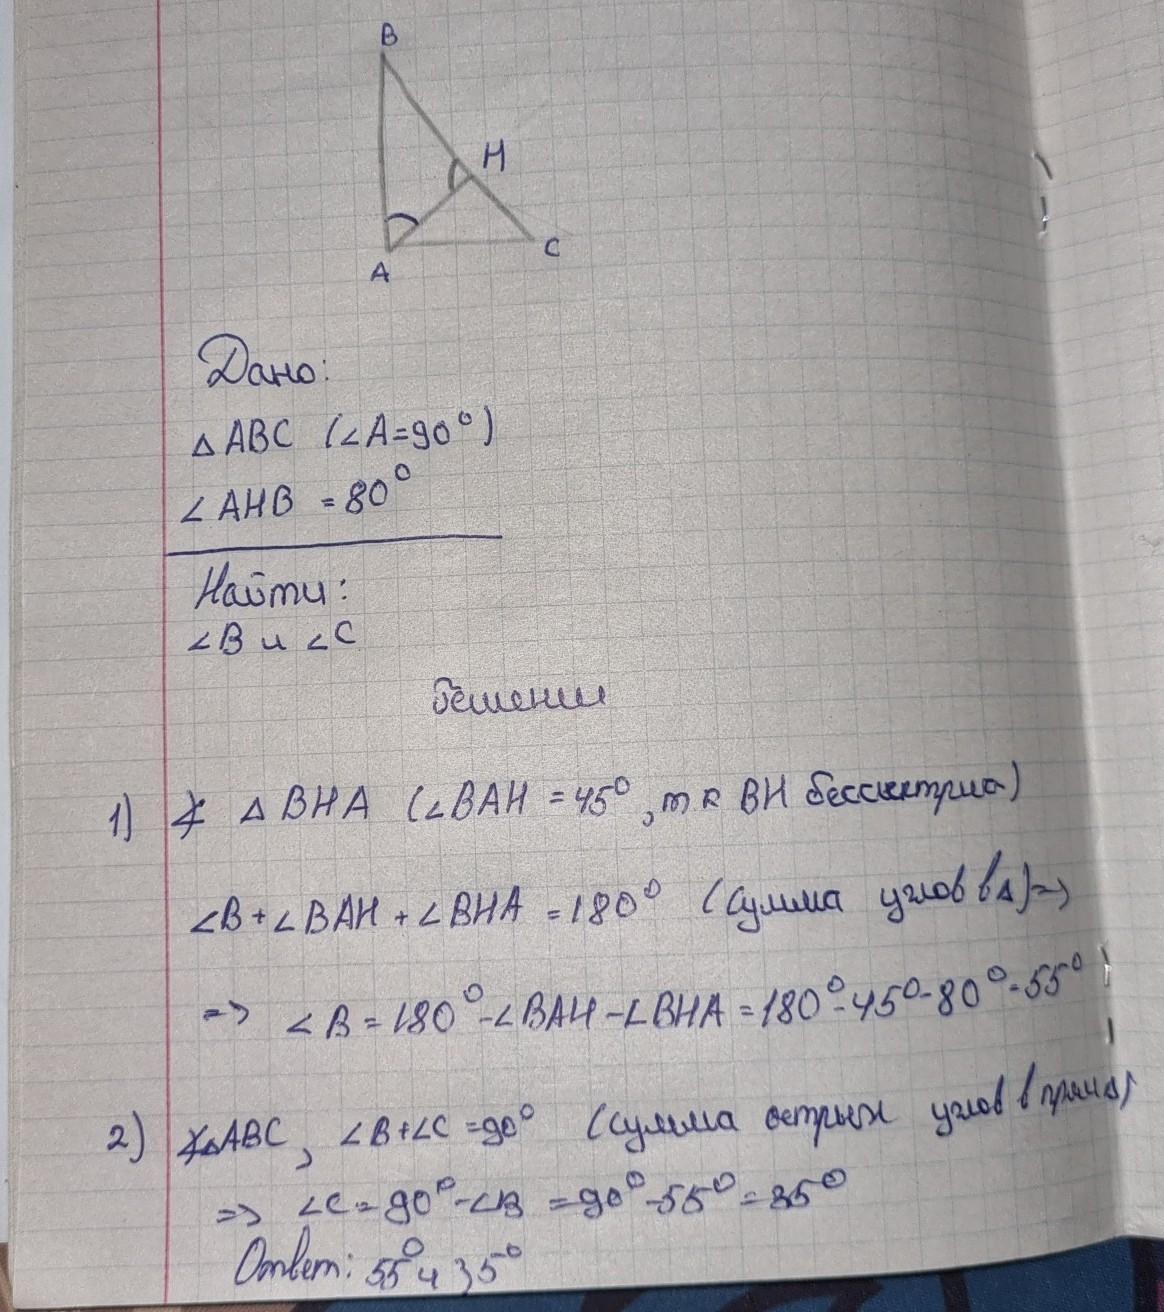 B
H
C
A
Дано:
△ABC (∠A=90°)
∠AHB = 80°
Найти:
∠B и ∠C
Решение
1) ∡ △BHA (∠BAH = 45°, т к BH бессиктриа)
∠B+∠BAH+∠BHA = 180° (Сумма углов в △) =>
=> ∠B = 180° - ∠BAH - ∠BHA = 180° - 45° - 80° = 55°
2) ∡△ABC, ∠B+∠C = 90° (Сумма острых углов в прям △)
=> ∠C = 90° - ∠B = 90° - 55° = 35°
Ответ: 55° и 35°